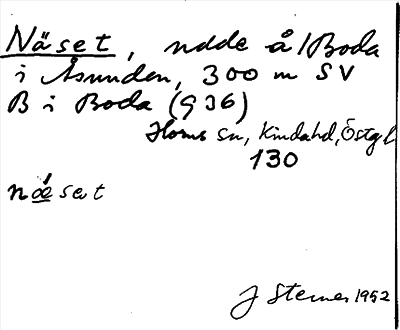 Näset, udde å/Boda
i Åsunden, 300 m SV
B i Boda (936)
Horns sn, Kinda hd, Östg l
130
næ´set
J Sterner 1952